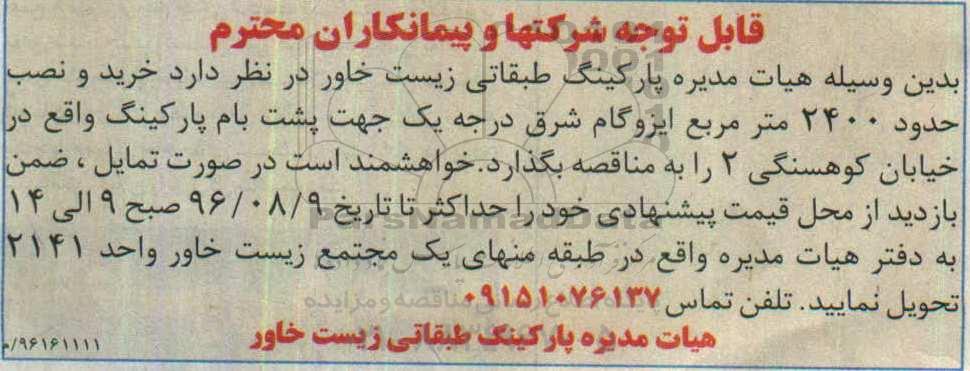 قابل توجه شرکتها و پیمانکاران محترم
بدین وسیله هیات مدیره پارکینگ طبقاتی زیست خاور در نظر دارد خرید و نصب
حدود ۲۴۰۰ متر مربع ایزوگام شرق درجه یک جهت پشت بام پارکینگ واقع در
خیابان کوهسنگی ۲ را به مناقصه بگذارد.خواهشمند است در صورت تمایل ، ضمن
بازدید از محل قیمت پیشنهادی خود را حداکثر تا تاریخ ۹۶/۰۸/۹ صبح ۹ الی ۱۴
ParsNamadData
به دفتر هیات مدیره واقع در طبقه منهای یک مجتمع زیست خاور واحد ۲۱۴۱
تحویل نمایید. تلفن تماس ۰۹۱۵۱۰۷۶۱۳۷
هیات مدیره پارکینگ طبقاتی زیست خاور
۹۶۱۶۱۱۱۱/م